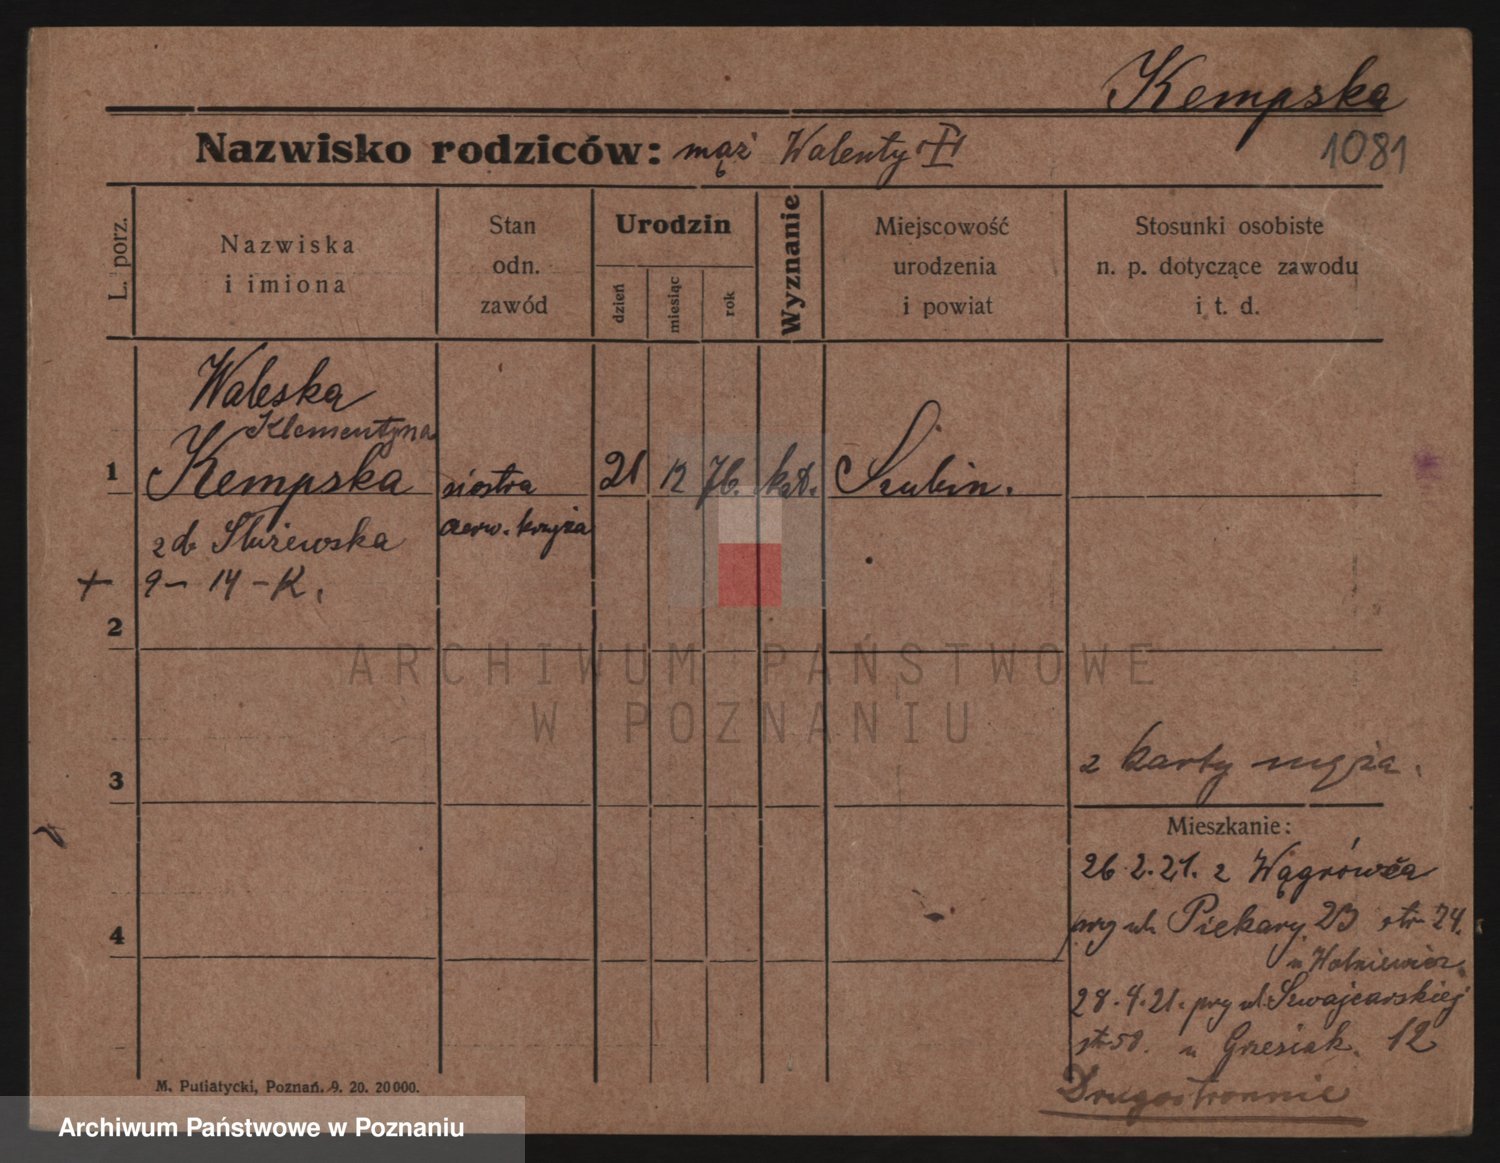 Kempska
1081
Nazwisko rodziców: mąż Walenty
L. porz.
Nazwiska
i imiona
Stan
odn.
zawód
Urodzin
dzień
miesiąc
rok
Wyznanie
Miejscowość
urodzenia
i powiat
Stosunki osobiste
n. p. dotyczące zawodu
i t. d.
Waleska
Klementyna
1 Kempska siostra 21 12 76. kat. Szubin.
czerw. krzyża
zd Służewska
+ 9 – 14 – K.
2
3
z karty męża.
Mieszkanie:
26.2.21. z Wągrówca
przy ul. Piekary 2B str 24.
4
28.4.21. przy ul. Szwajcarskiej
u Grzesiak. 12
Drugostronnie
M. Putiatycki, Poznań. 9. 20. 20000.
ARCHIWUM PAŃSTWOWE
W POZNANIU
Archiwum Państwowe w Poznaniu